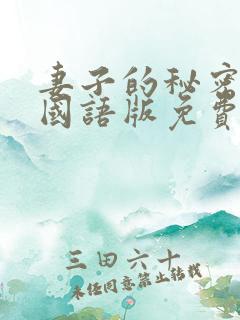 妻子的秘密
國語版免費
三田六十
未经同意禁止转载